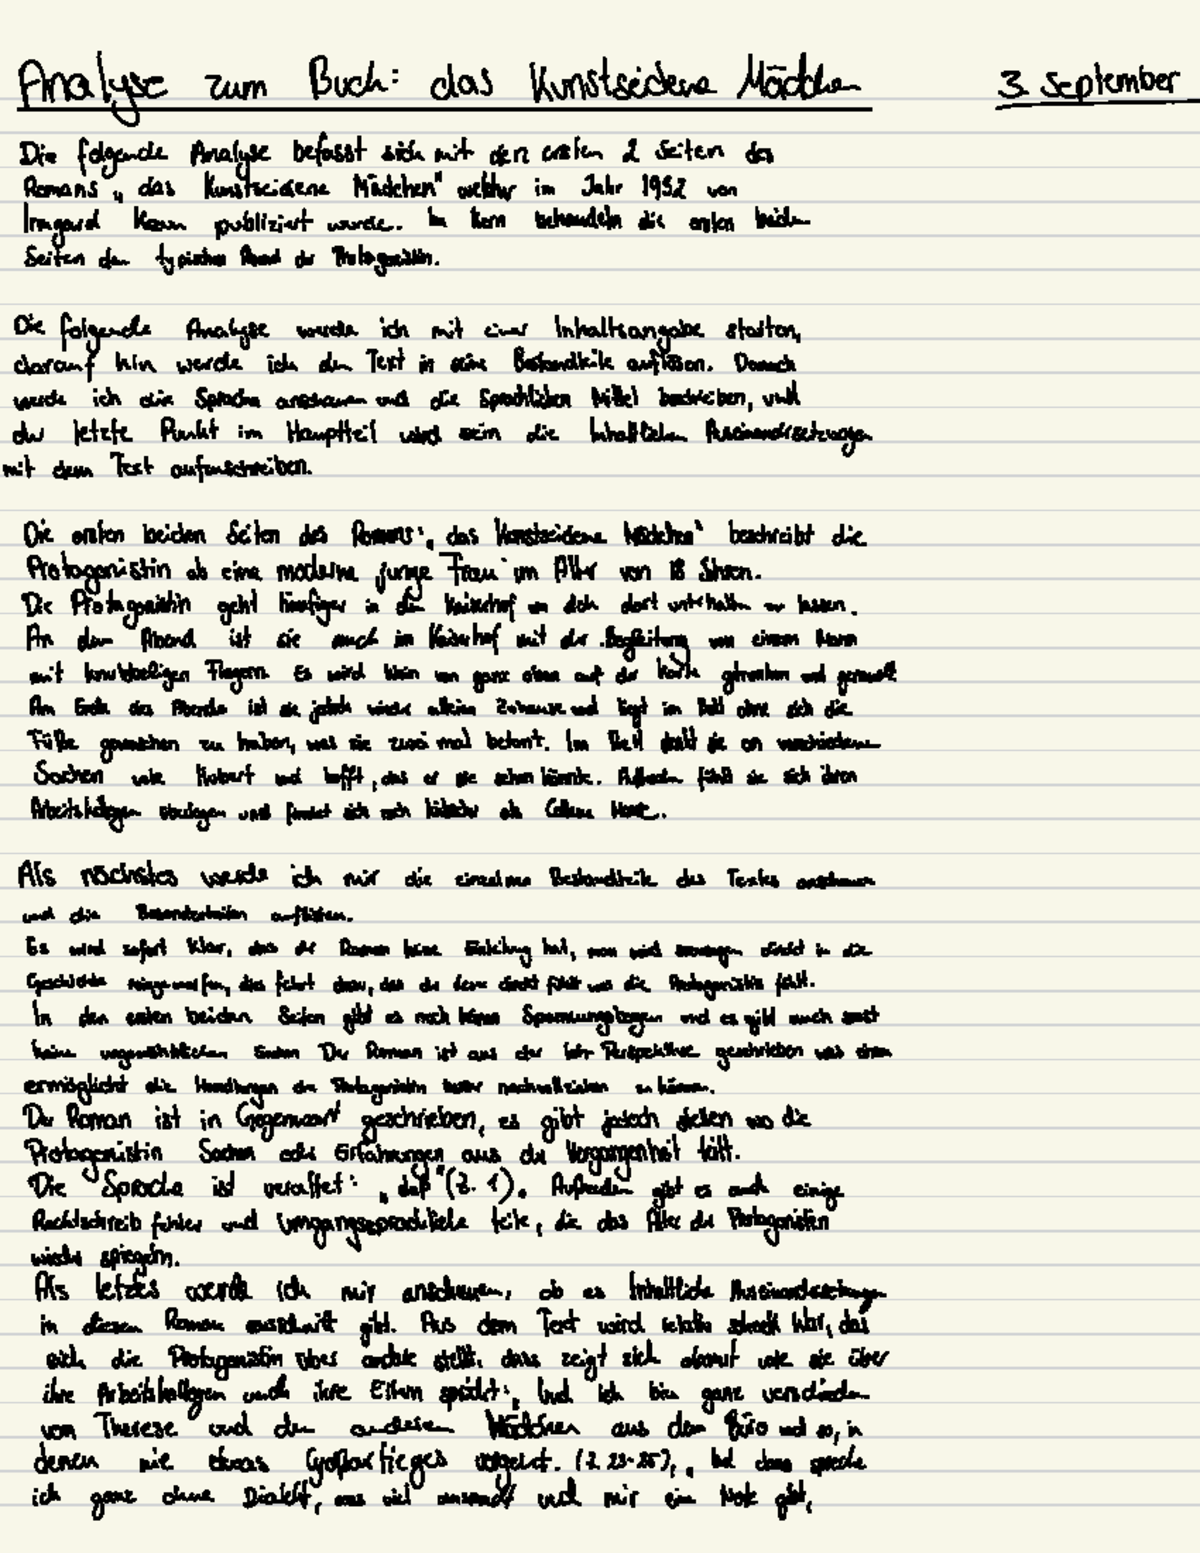 Analyse zum Buch: das Kunstseidene Mädchen 3. September
Die folgende Analyse befasst sich mit den ersten 2 Seiten des
Romans „das Kunstseidene Mädchen" welcher im Jahr 1932 von
Irmgard Keun publiziert wurde. Im Kern behandeln die ersten beiden
Seiten den typischen Abend der Protagonistin.
Die folgende Analyse werde ich mit einer Inhaltsangabe starten,
darauf hin werde ich den Text in seine Bestandteile auflösen. Danach
werde ich die Sprache anschauen und die Sprachlichen Mittel beschreiben, und
der letzte Punkt im Hauptteil wird sein die Inhaltlichen Auseinandersetzungen
mit dem Text aufzuschreiben.
Die ersten beiden Seiten des Romans: „das Kunstseidene Mädchen" beschreibt die
Protagonistin als eine moderne junge Frau im Alter von 18 Jahren.
Die Protagonistin geht häufiger in den Kaiserhof um sich dort unterhalten zu lassen.
An dem Abend ist sie auch im Kaiserhof mit der Begleitung von einem Mann
mit knubbeligen Fingern. Es wird Wein von ganz oben auf der Karte getrunken und geraucht
Am Ende des Abends ist sie jedoch wieder alleine Zuhause und liegt im Bett ohne sich die
Füße gewaschen zu haben, was sie zwei mal betont. Im Bett denkt sie an verschiedene
Sachen wie Hubert und hofft, das er sie sehen könnte. Außerdem fühlt sie sich ihren
Arbeitskollegen überlegen und findet sich noch hübscher als Colleen Moore.
Als nächstes werde ich mir die einzelnen Bestandteile des Textes anschauen
und die Besonderheiten auflisten.
Es wird sofort klar, das der Roman keine Einleitung hat, man wird direkt in die
Geschichte reingeworfen, dies führt dazu, das der Leser direkt fühlt was die Protagonistin fühlt.
In den ersten beiden Seiten gibt es noch keinen Spannungsbogen und es gibt auch sonst
keine ungewöhnlichen Der Roman ist aus der Ich-Perspektive geschrieben was einem
ermöglicht die Handlungen der Protagonistin besser nachvollziehen zu können.
Der Roman ist in Gegenwart geschrieben, es gibt jedoch stellen wo die
Protagonistin Sachen oder Erfahrungen aus der Vergangenheit teilt.
Die Sprache ist veraltet: „daß" (Z. 1). Außerdem gibt es auch einige
Rechtschreib fehler und Umgangssprachliche teile, die das Alter der Protagonisten
wieder spiegeln.
Als letztes werde ich mir anschauen, ob es Inhaltliche Auseinandersetzungen
in diesem Roman ausschnitt gibt. Aus dem Text wird relativ schnell klar, das
sich die Protagonistin über andere stellt, dass zeigt sich darauf wie sie über
ihre Arbeitskollegen und ihre Eltern spricht: „Und ich bin ganz verschieden
von Therese und den anderen Mädchen aus dem Büro und so, in
denen nie etwas Großartieges vorgeht. (Z. 23-25), „ Und dann spreche
ich ganz ohne Dialekt, was viel ausmacht und mir eine Note gibt,